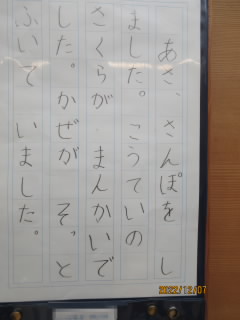 あさ、さんぽを し
ました。こうていの
さくらが まんかいで
した。かぜが そっと
ふいて いました。
2022/12/07